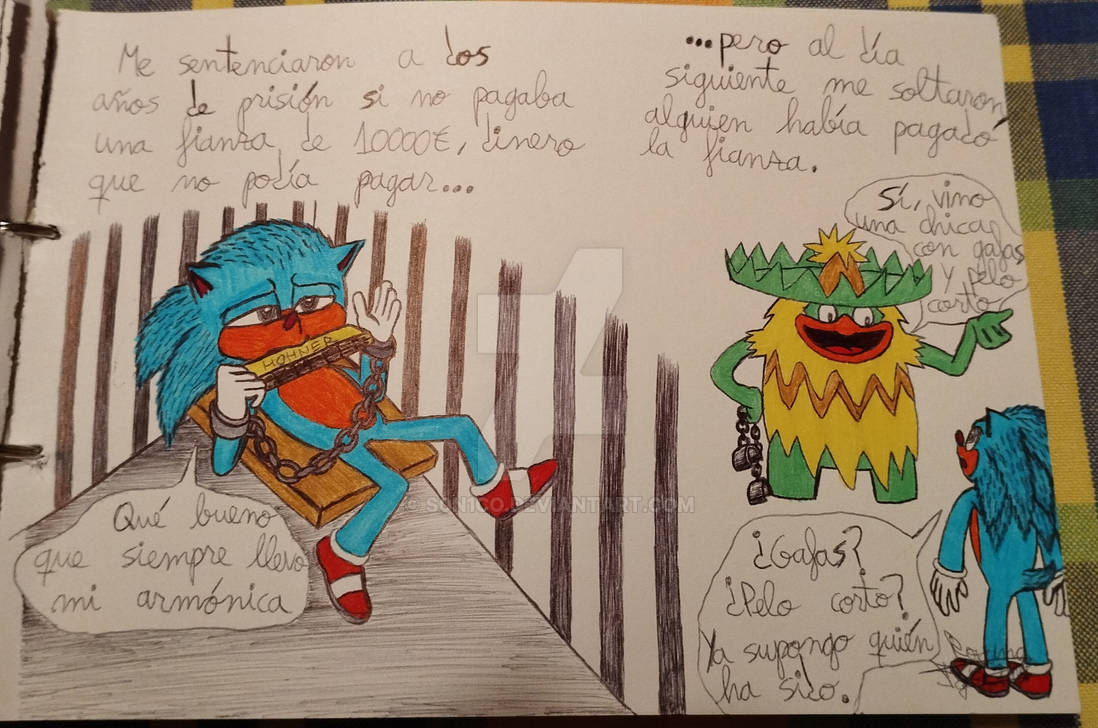 Me sentenciaron a dos
años de prisión si no pagaba
una fianza de 10000€, dinero
que no podía pagar...
...pero al día
siguiente me soltaron
alguien había pagado
la fianza.
Sí, vino
una chica
con gafas
y pelo
corto
HOHNER
Qué bueno
que siempre llevo
mi armónica
¿Gafas?
¿Pelo corto?
Ya supongo quién
ha sido.
© SUN1CO.DEVIANTART.COM